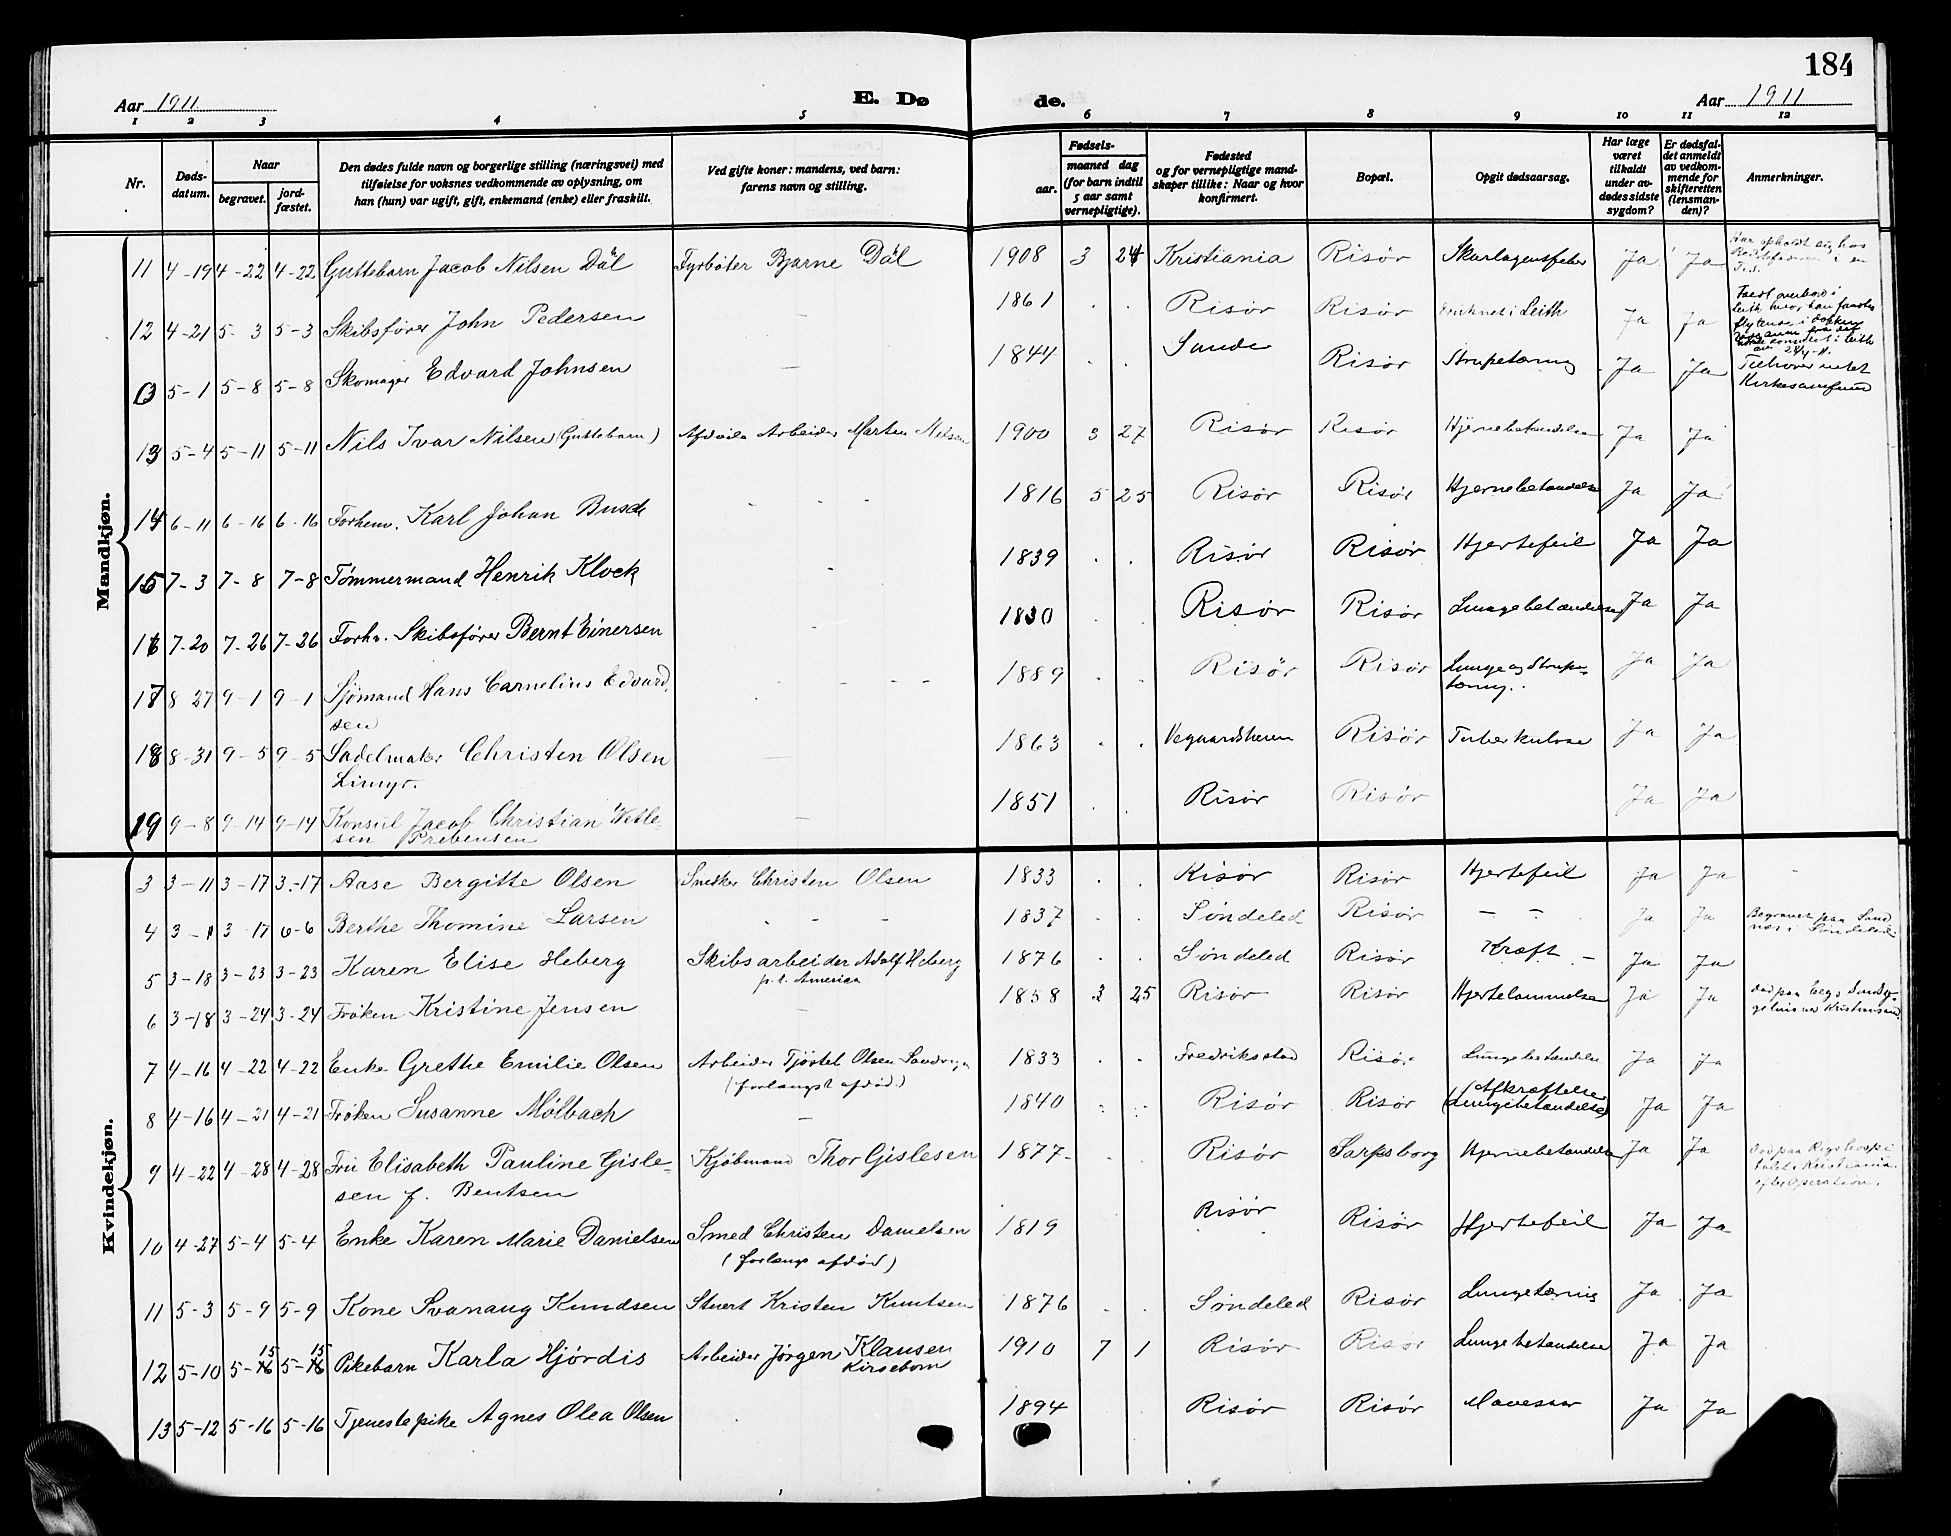 184
Aar 1911 E. Dø de. Aar 1911
1 2 3 4 5 6 7 8 9 10 11 12
Nr. Døds-datum. Naar begravet. jord-fæstet. Den dødes fulde navn og borgerlige stilling (næringsvei) med tilføielse for voksnes vedkommende av oplysning, om han (hun) var ugift, gift, enkemand (enke) eller fraskilt. Ved gifte koner: mandens, ved barn: farens navn og stilling. Fødsels- aar. maaned dag (for barn indtil 5 aar samt vernepligtige). Fødested og for vernepligtige mandskaper tillike: Naar og hvor konfirmert. Bopæl. Opgit dødsaarsag. Har læge været tilkaldt under avdødes sidste sygdom? Er dødsfaldet anmeldt av vedkommende for skifteretten (lensmanden)? Anmerkninger.
Mandkjøn.
11 4-19 4-22 4-22 Guttebarn Jacob Nilsen Dål Fyrbøter Bjarne Dål 1908 3 24 Kristiania Risør Skarlagensfeber Ja Ja
12 4-21 5-3 5-3 Skibsfører John Pedersen — 1861 . . Risør Risør Druknet i Leith Ja Ja
5-1 5-8 5-8 Skomager Edvard Johnsen — 1844 Sande Risør Strupetæring Ja Ja Tilhører intet Kirkesamfund
13 5-4 5-11 5-11 Nils Ivar Nilsen (Guttebarn) Afdøde Arbeider Marten Nilsen 1900 3 27 Risør Risør Hjernebetændelse Ja Ja
14 6-11 6-16 6-16 Forhenv. Karl Johan Busch - - - 1816 5 25 Risør Risør Hjernebetændelse Ja Ja
15 7-3 7-8 7-8 Tømmermand Henrik Klock - 1839 . . Risør Risør Hjertefeil Ja Ja
16 7-20 7-26 7-26 Forhv. Skibsfører Bernt Einersen - 1830 . . Risør Risør Lungebetændelse Ja Ja
17 8-27 9-1 9-1 Sjømand Hans Carnelius Edvard- - - - - 1889 . . Risør Risør Lunge og Strupe- Ja Ja
sen tæring.
18 8-31 9-5 9-5 Sadelmaker Christen Olsen — 1863 . . Vegaardsheien Risør Tuberkulose Ja Ja
Limyr.
19 9-8 9-14 9-14 Konsul Jacob Christian Wetle- — 1851 . . Risør Risør Ja Ja
sen Prebensen
Kvindekjøn.
3 3-11 3-17 3-17 Aase Bergitte Olsen Snedker Christen Olsen 1833 . . Risør Risør Hjertefeil Ja Ja -
4 3-11 3-17 6-6 Berthe Thomine Larsen - - - 1837 . . Søndeled Risør — - Ja Ja Begravet paa Sand
næs i Søndeled
5 3-18 3-23 3-23 Karen Elise Heberg Skibsarbeider Adolf Heberg 1876 . . Søndeled Risør Kræft - Ja Ja
p.t. Amerika
6 3-18 3-24 3-24 Frøken Kristine Jensen — 1858 3 25 Risør Risør Hjertelammelse Ja Ja
7 4-16 4-22 4-22 Enke Grethe Emilie Olsen Arbeider Tjøstel Olsen Sandvigen 1833 . . Fredriksstad Risør Lungebetændelse Ja Ja
(forlængst afdød.)
8 4-16 4-21 4-21 Frøken Susanne Mølbach — 1840 . . Risør Risør (Afkræftelse Ja Ja
(Lungebetændelse)
9 4-22 4-28 4-28 Fru Elisabeth Pauline Gisle- Kjøbmand Thor Gislesen 1877 . Risør Sarpsborg Hjernebetændelse Ja Ja Død paa Rigshospi
sen f. Bentsen talet Kristiania
efter Operation.
10 4-27 5-4 5-4 Enke Karen Marie Danielsen Smed Christen Danielsen 1819 Risør Risør Hjertefeil Ja Ja
(forlængs afdød)
11 5-3 5-9 5-9 Kone Svanaug Knudsen Stuert Kristen Knutsen 1876 . . Søndeled Risør Lungetæring Ja Ja
12 5-10 5-15 5-15 Pikebarn Karla Hjørdis Arbeider Jørgen Klausen 1910 7 1 Risør Risør Lungebetændelse Ja Ja
Kirsebom
13 5-12 5-16 5-16 Tjenestepike Agnes Olea Olsen 1894 Risør Risør Mavesaar Ja Ja